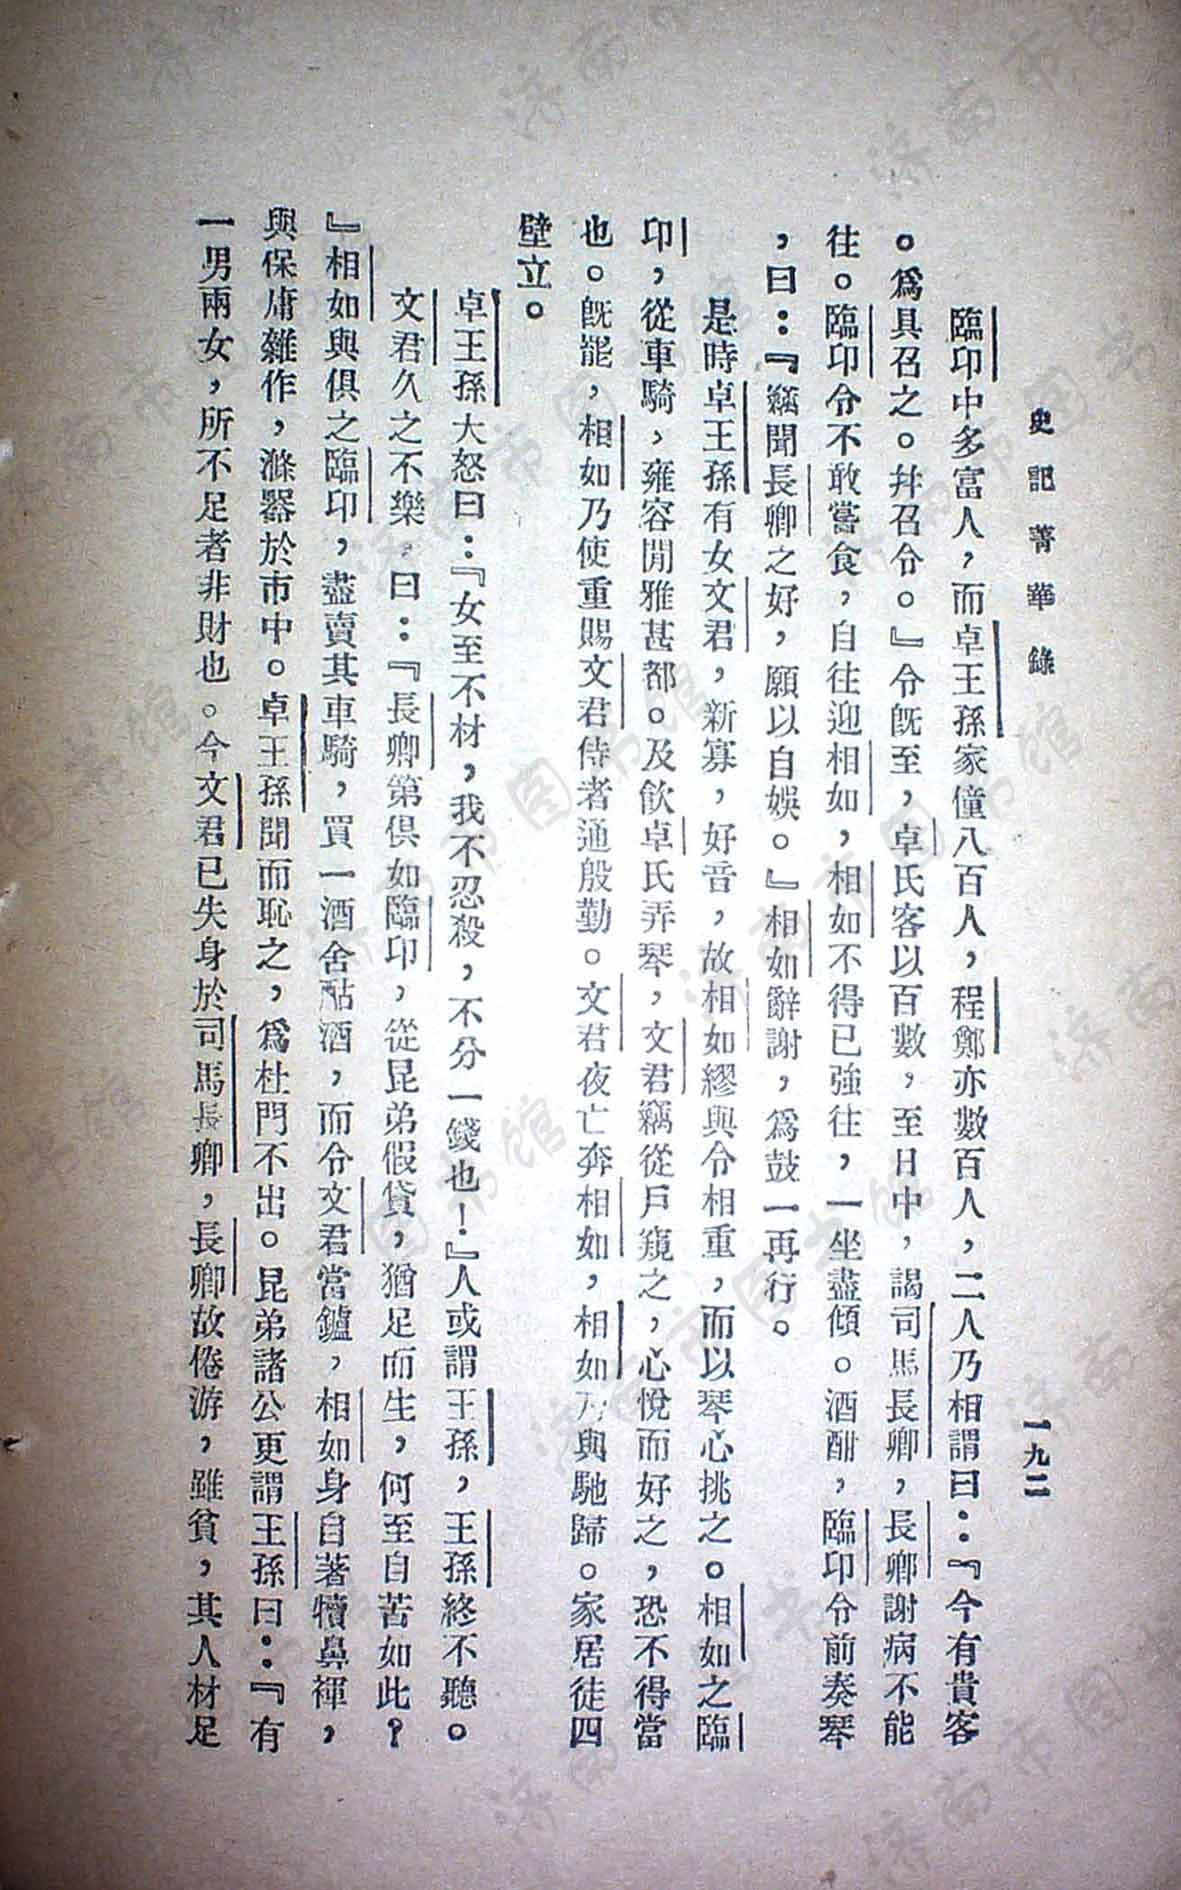 史記菁華錄
一九二
臨卭中多富人，而卓王孫家僮八百人，程鄭亦數百人，二人乃相謂曰：『今有貴客
。爲具召之。幷召令。』令旣至，卓氏客以百數，至日中，謁司馬長卿，長卿謝病不能
往。臨卭令不敢嘗食，自往迎相如，相如不得已強往，一坐盡傾。酒酣，臨卭令前奏琴
，曰：『竊聞長卿之好，願以自娛。』相如辭謝，爲鼓一再行。
是時卓王孫有女文君，新寡，好音，故相如繆與令相重，而以琴心挑之。相如之臨
卭，從車騎，雍容閒雅甚都。及飮卓氏弄琴，文君竊從戶窺之，心悅而好之，恐不得當
也。旣罷，相如乃使重賜文君侍者通殷勤。文君夜亡奔相如，相如乃與馳歸。家居徒四
壁立。
卓王孫大怒曰：『女至不材，我不忍殺，不分一錢也！』人或謂王孫，王孫終不聽。
文君久之不樂，曰：『長卿第俱如臨卭，從昆弟假貸，猶足而生，何至自苦如此？
』相如與俱之臨卭，盡賣其車騎，買一酒舍酤酒，而令文君當鑪，相如身自著犢鼻褌，
與保庸雜作，滌器於市中。卓王孫聞而恥之，爲杜門不出。昆弟諸公更謂王孫曰：『有
一男兩女，所不足者非財也。今文君已失身於司馬長卿，長卿故倦游，雖貧，其人材足
济南市图书馆